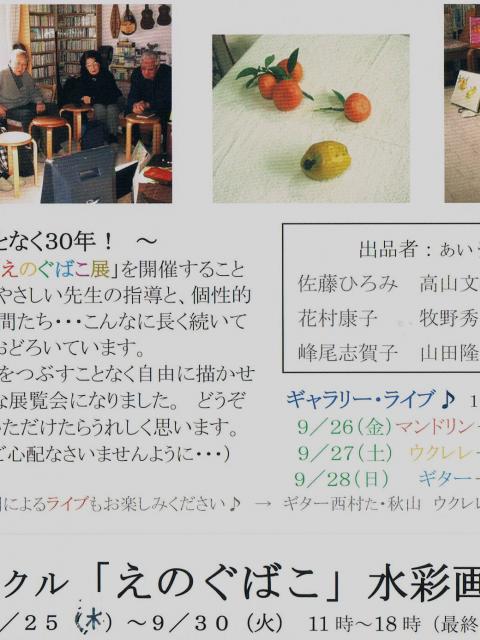 となく30年！　～
えのぐばこ展」を開催すること
やさしい先生の指導と、個性的
間たち・・・こんなに長く続いて
おどろいています。
をつぶすことなく自由に描かせ
な展覧会になりました。　どうぞ
いただけたらうれしく思います。
ご心配なさいませんように・・・）
出品者：あい
佐藤ひろみ　高山文
花村康子　牧野秀
峰尾志賀子　山田隆
ギャラリー・ライブ♪　1
9／26（金）マンドリン
9／27（土）　ウクレレ
9／28（日）　ギター
によるライブもお楽しみください♪　→　ギター西村た・秋山　ウクレレ
クル「えのぐばこ」水彩画
／25（木）～9／30（火）　11時～18時（最終